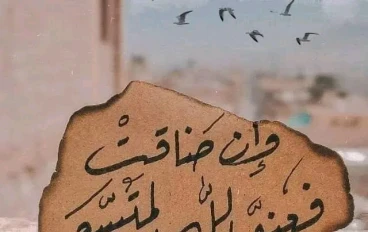 وإن ضَاقتْ
فعندَ اللّٰه لمتَّسع